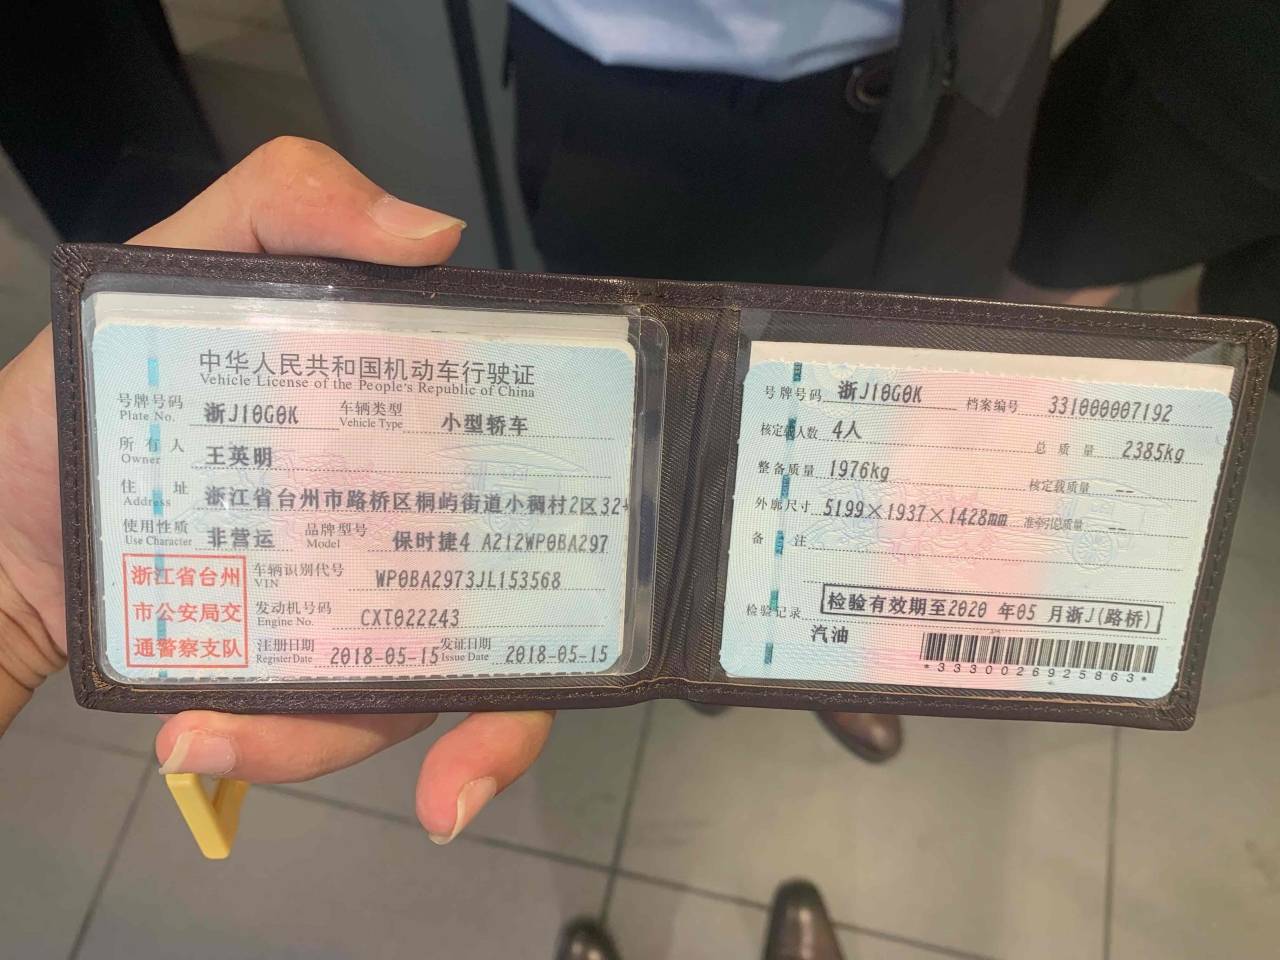 中华人民共和国机动车行驶证
Vehicle License of the People's Republic of China
号牌号码 浙J10G0K 车辆类型 小型轿车
Plate No. Vehicle Type
所有人 王英明
Owner
住址 浙江省台州市路桥区桐屿街道小稠村2区32号
Address
使用性质 非营运 品牌型号 保时捷4 A212WP0BA297
Use Character Model
浙江省台州
市公安局交
通警察支队
车辆识别代号 WP0BA2973JL153568
VIN
发动机号码 CXT022243
Engine No.
注册日期 2018-05-15 发证日期 2018-05-15
Register Date Issue Date
号牌号码 浙J10G0K 档案编号 331000007192
核定载人数 4人 总质量 2385kg
整备质量 1976kg 核定载质量 --
外廓尺寸 5199×1937×1428mm 准牵引总质量 --
备注
检验记录 检验有效期至2020年05月浙J(路桥)
汽油
*3330026925863*